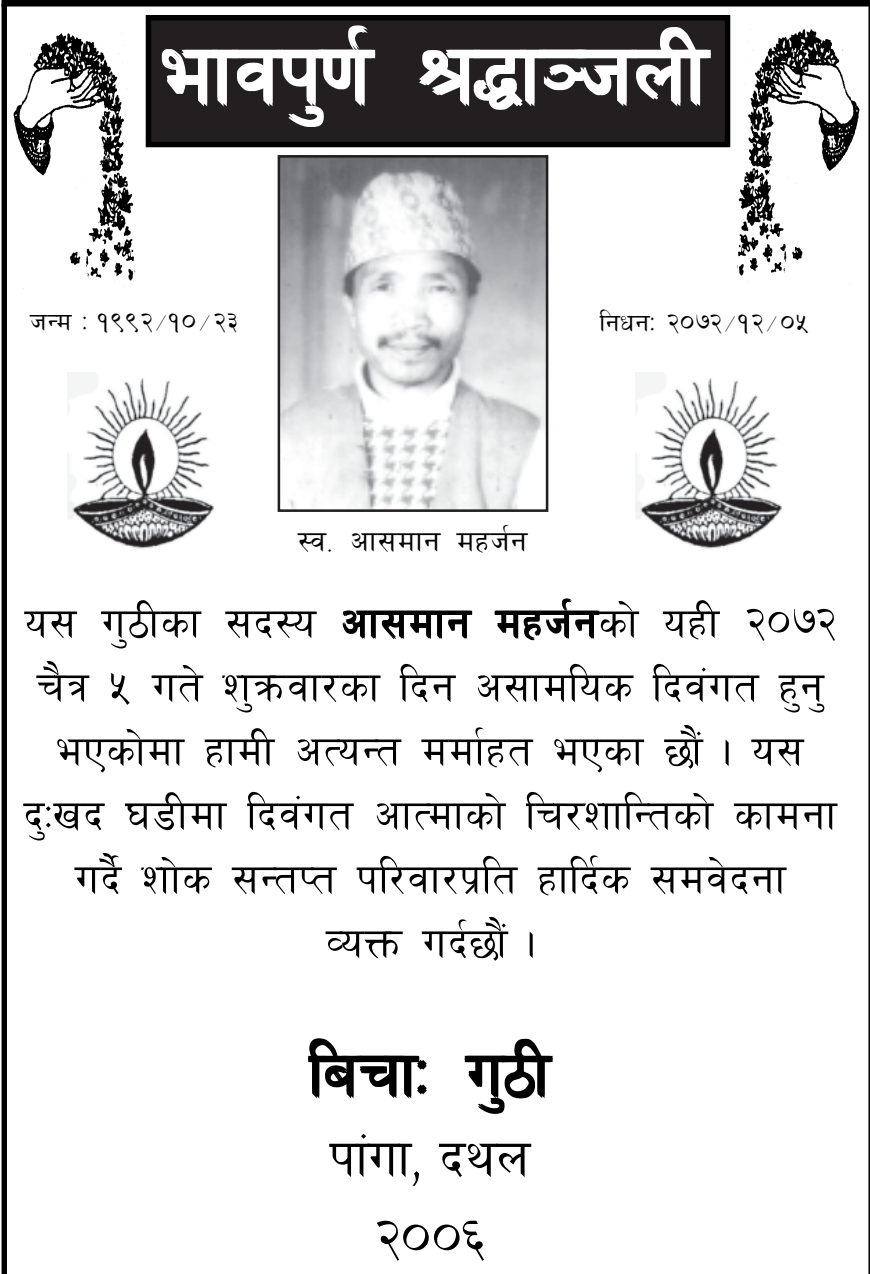 भावपुर्ण श्रद्धाञ्जली
जन्म : १९९२/१०/२३
निधनः २०७२/१२/०५
स्व. आसमान महर्जन
यस गुठीका सदस्य आसमान महर्जनको यही २०७२
चैत्र ५ गते शुक्रवारका दिन असामयिक दिवंगत हुनु
भएकोमा हामी अत्यन्त मर्माहत भएका छौं । यस
दुःखद घडीमा दिवंगत आत्माको चिरशान्तिको कामना
गर्दै शोक सन्तप्त परिवारप्रति हार्दिक समवेदना
व्यक्त गर्दछौं ।
बिचाः गुठी
पांगा, दथल
२००६